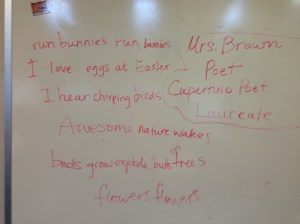 run bunnies run bunnies
I love eggs at Easter
I hear chirping birds
Awesome nature wakes
buds grow explode buds trees
flowers flowers
Mrs. Brown
Poet
Cupertino Poet
Laureate